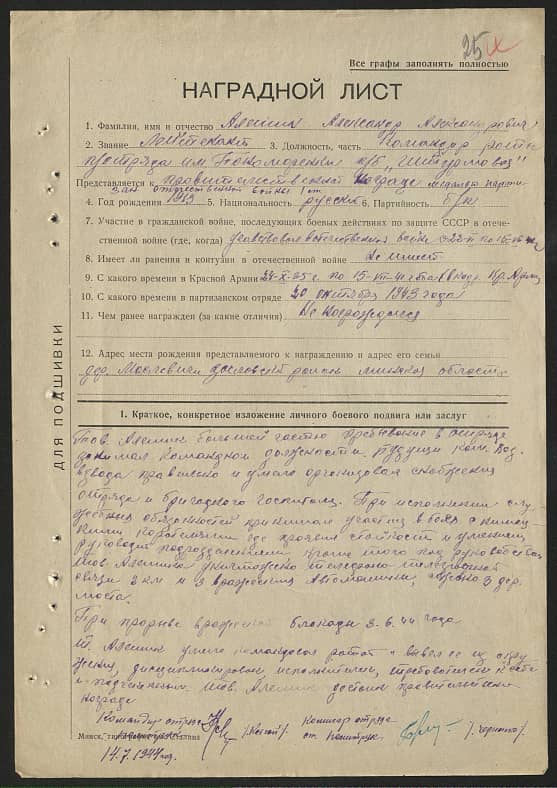 25
Все графы заполнять полностью
НАГРАДНОЙ ЛИСТ
1. Фамилия, имя и отчество Алешин Александр Александрович
2. Звание Лейтенант 3. Должность, часть Командир роты
п/отряда им. п/б "Штурмовая"
Представляется к правительственной награде
отечественной войны 1 ст
4. Год рождения 1913 5. Национальность русский 6. Партийность б/п
7. Участие в гражданской войне, последующих боевых действиях по защите СССР в отече-
ственной войне (где, когда) участвовал в отечественной войне с
8. Имеет ли ранения и контузии в отечественной войне Не имеет
9. С какого времени в Красной Армии 24-X-35 г. по 15-VII-41 г. был в кадр. Кр. Армии
10. С какого времени в партизанском отряде 20 октября 1943 года
11. Чем ранее награжден (за какие отличия) Не награждался
12. Адрес места рождения представляемого к награждению и адрес его семьи
дер. района Минской области
ДЛЯ ПОДШИВКИ
1. Краткое, конкретное изложение личного боевого подвига или заслуг
Тов. Алешин большей частью пребывание в отряде
занимал командные должности, будучи ком. хоз.
взвода правильно и умело организовал снабжение
отряда и бригадного госпиталя. При исполнении слу-
жебных обязанностей принимал участие в боях с немец-
кими где проявил стойкость и умением
руководил подразделением. Кроме того под руководством
тов. Алешина уничтожено телефонно телеграфной
связи 2 км и 3 вражеских автомашины, 3 дер.
моста.
При прорыве вражеской блокады 8.6.44 года
т. Алешин умело командовал ротой и вывел ее из окру
жения, дисциплинирован исполнителен, требователен к себе
и подчиненным. Тов. Алешин достоин правительствен.
награды
Командир отряда Комиссар отряда
ст. политрук
Минск,
14.7.1944 год.